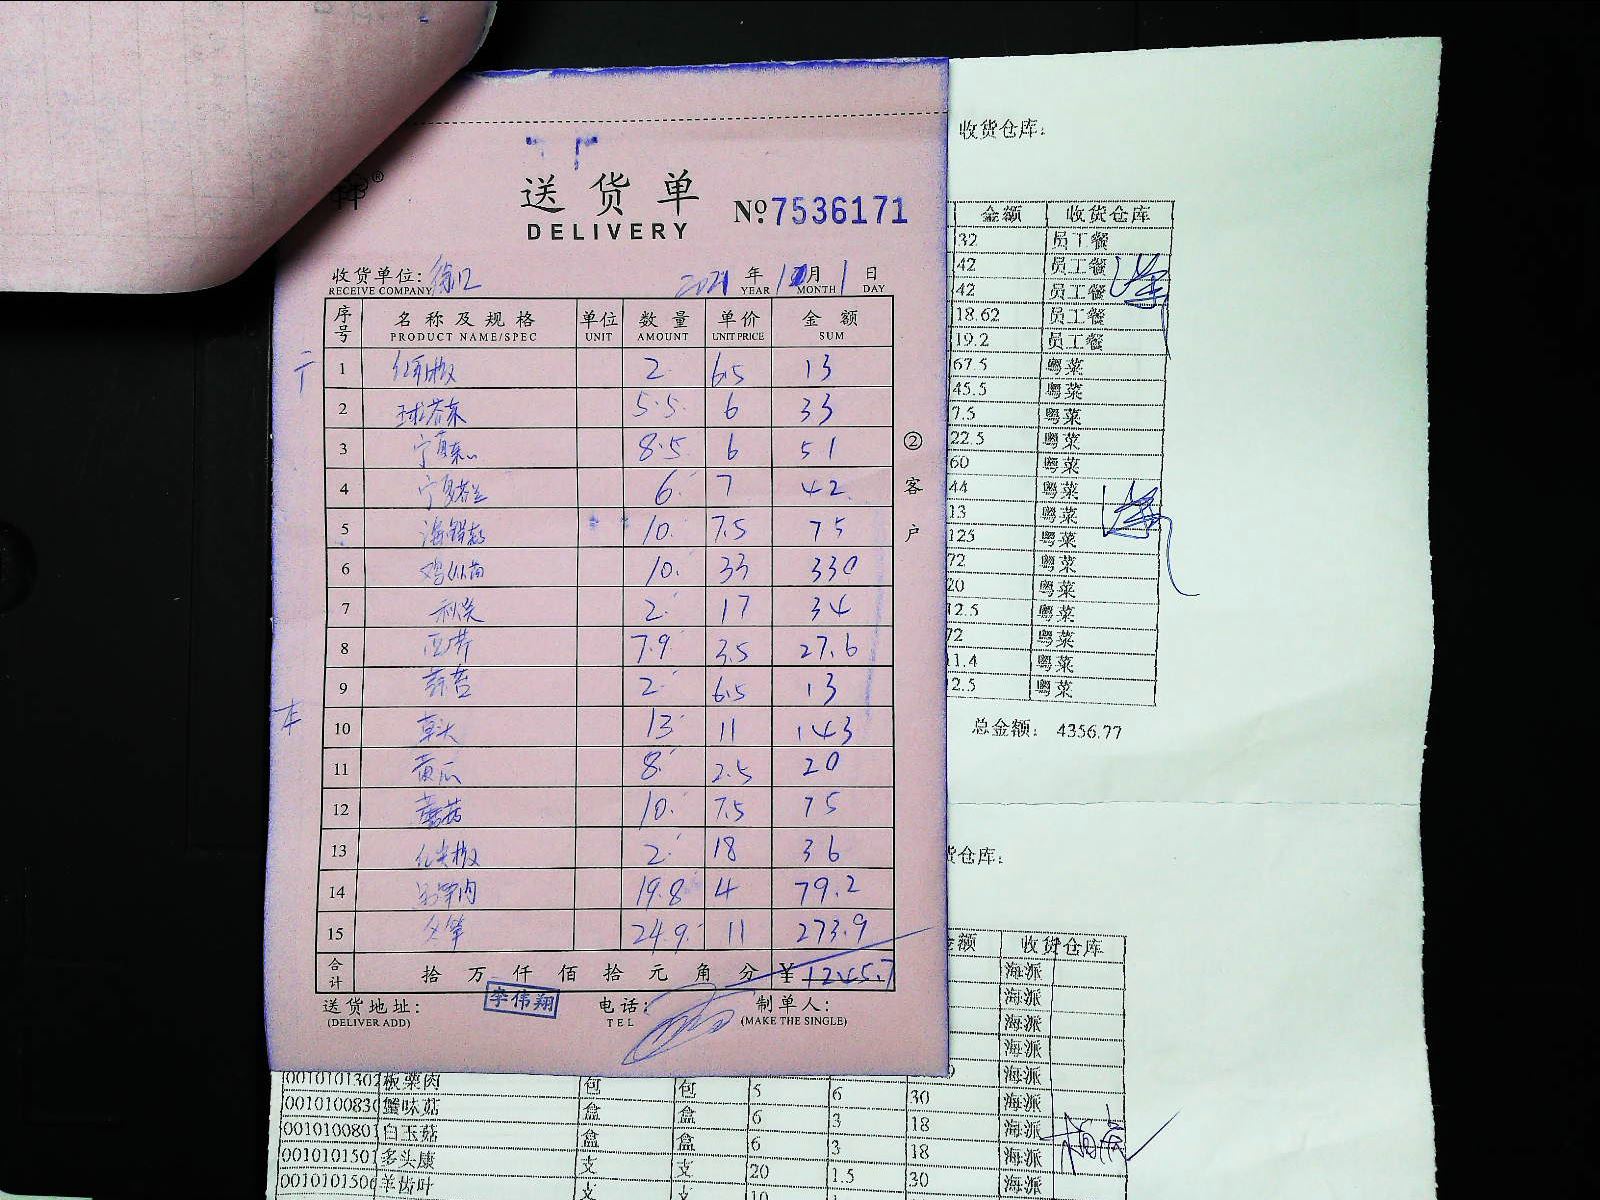 送货单
DELIVERY
№7536171
收货单位:徐汇 2021年 月1日
RECEIVE COMPANY YEAR MONTH DAY
序号 名称及规格 单位 数量 单价 金额
PRODUCT NAME/SPEC UNIT AMOUNT UNIT PRICE SUM
1 2 6.5 13
2 球茶 5.5 6 33
3 8.5 6 51
4 6 7 42
5 海鲜菇 10 7.5 75
6 鸡 10 33 330
7 秋葵 2 17 34
8 豆芽 7.9 3.5 27.6
9 2 6.5 13
10 草头 13 11 143
11 黄瓜 8 2.5 20
12 蘑菇 10 7.5 75
13 红尖椒 2 18 36
14 19.8 4 79.2
15 冬笋 24.9 11 273.9
合计 拾 万 仟 佰 拾 元 角 分 ¥1245.7
送货地址: 李伟翔 电话: 制单人:
(DELIVER ADD) TEL (MAKE THE SINGLE)
②客户
收货仓库:
金额 收货仓库
32 员工餐
42 员工餐
42 员工餐
18.62 员工餐
19.2 员工餐
67.5 粤菜
45.5 粤菜
7.5 粤菜
22.5 粤菜
60 粤菜
44 粤菜
13 粤菜
125 粤菜
72 粤菜
20 粤菜
12.5 粤菜
72 粤菜
11.4 粤菜
2.5 粤菜
总金额: 4356.77
货仓库:
金额 收货仓库
海派
海派
海派
海派
海派
0010101302 板栗肉 包 包 5 6 30 海派
001010083 蟹味菇 盒 盒 6 3 18 海派
001010080 白玉菇 盒 盒 6 3 18 海派
001010150 多头康 支 支 20 1.5 30 海派
001010150 羊齿叶 支 支 10